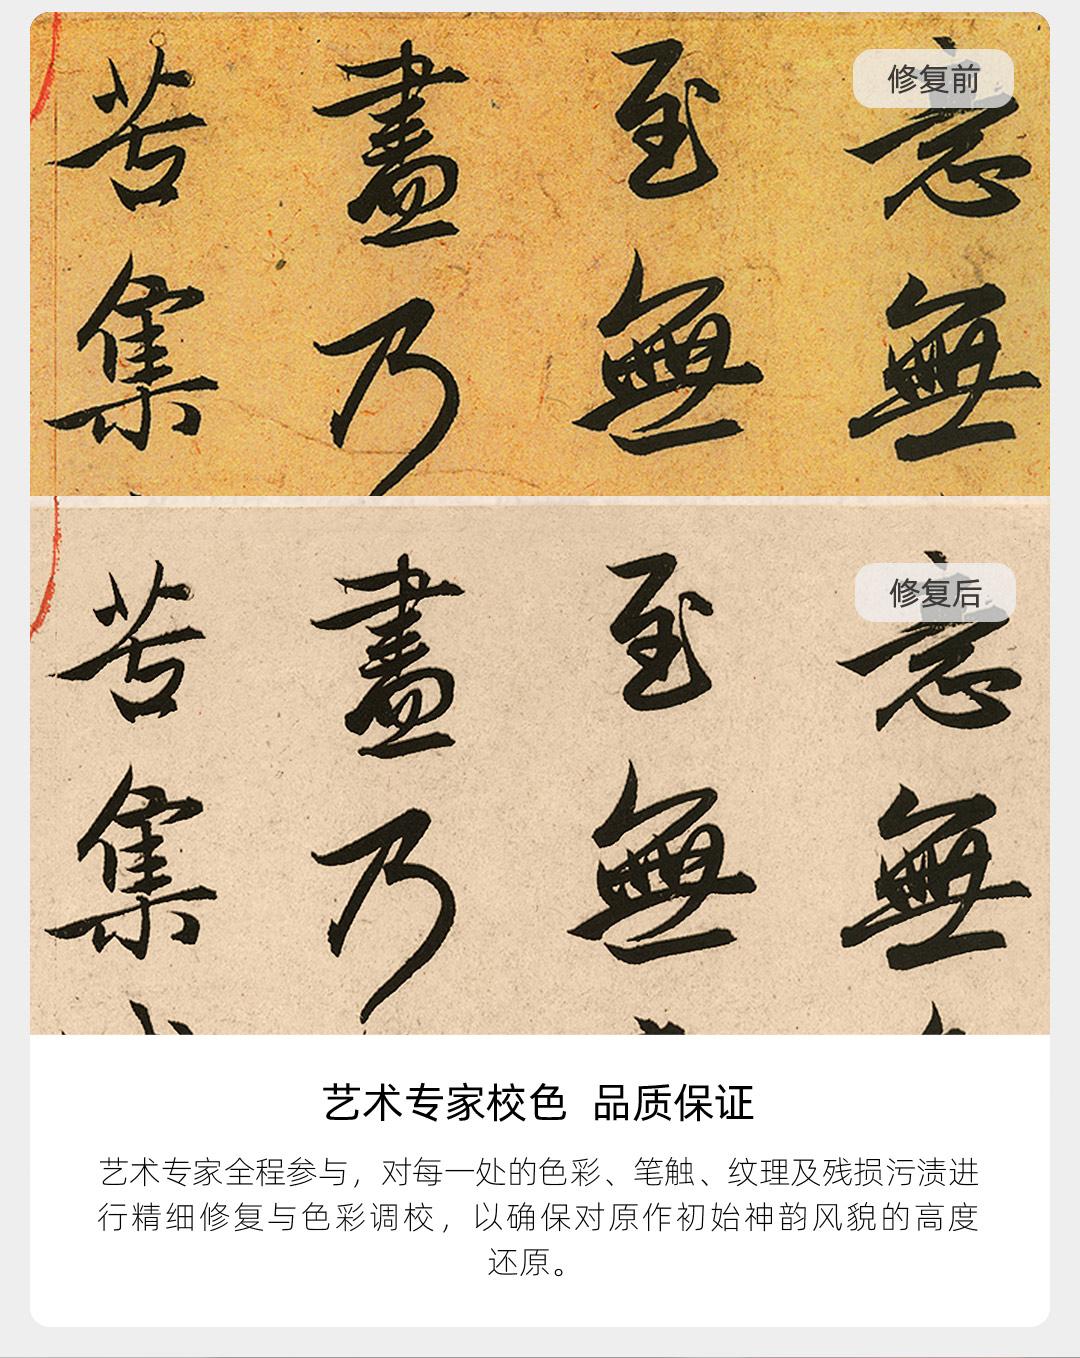 修复前
意無
至無
盡乃
苦集
修复后
意無
至無
盡乃
苦集
艺术专家校色 品质保证
艺术专家全程参与，对每一处的色彩、笔触、纹理及残损污渍进
行精细修复与色彩调校，以确保对原作初始神韵风貌的高度
还原。